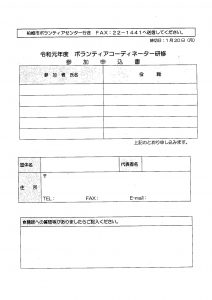 柏崎市ボランティアセンター行き FAX:22-1441へ送信してください。
締切日:1月20日(月)
令和元年度 ボランティアコーディネーター研修
参加申込書
参加者氏名 役職
上記のとおり申し込みます。
団体名 代表者名
住所 〒
TEL: FAX: E-mail:
●講師への質問等がありましたらご記入ください。